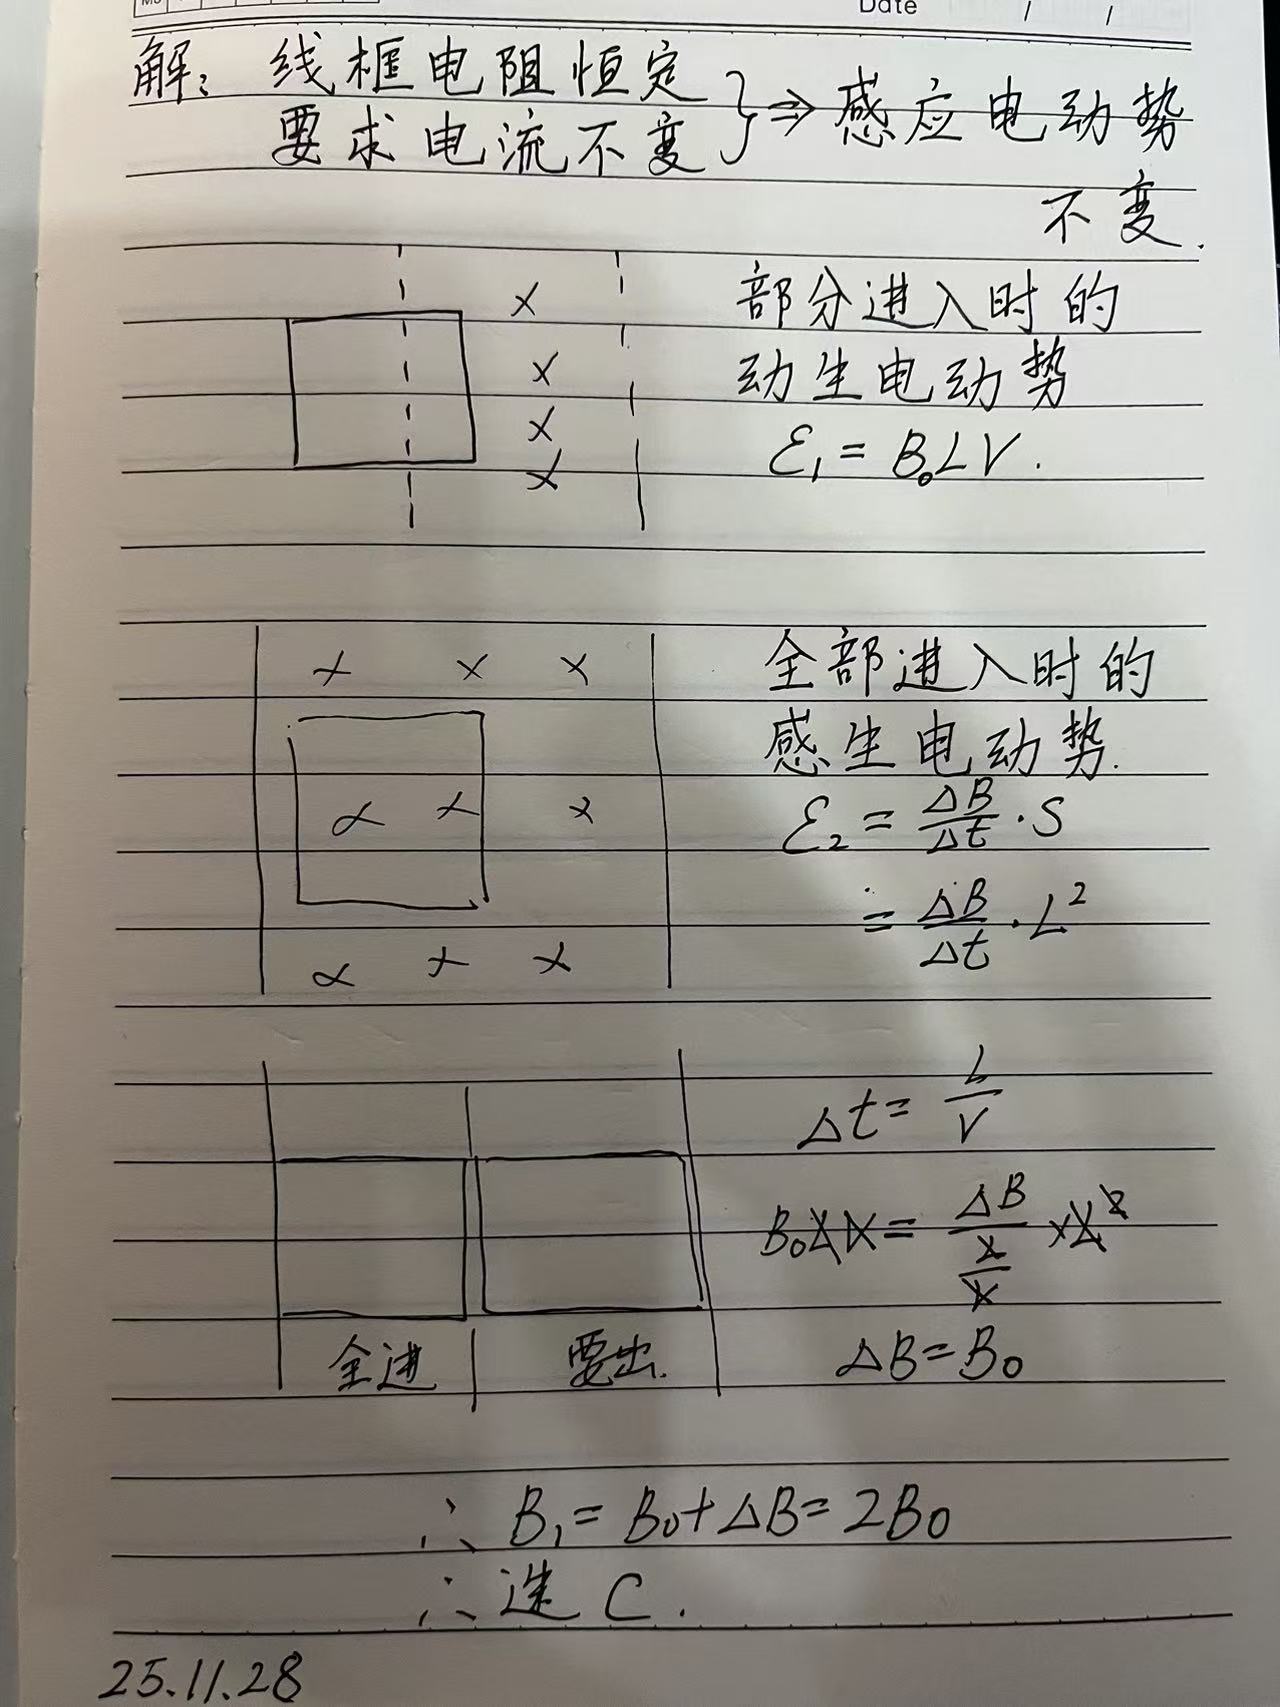 Date / /
解: 线框电阻恒定
要求电流不变
} ⇒ 感应电动势
不变.
×
×
×
×
部分进入时的
动生电动势
ε₁ = B₀LV.
× × ×
× × ×
× × ×
全部进入时的
感生电动势.
ε₂ = ΔB/Δt · S
= ΔB/Δt · L²
Δt = L/V
B₀LV = ΔB/(L/V) × L²
全进 要出.
ΔB = B₀
∴ B₁ = B₀ + ΔB = 2B₀
∴ 选 C.
25.11.28